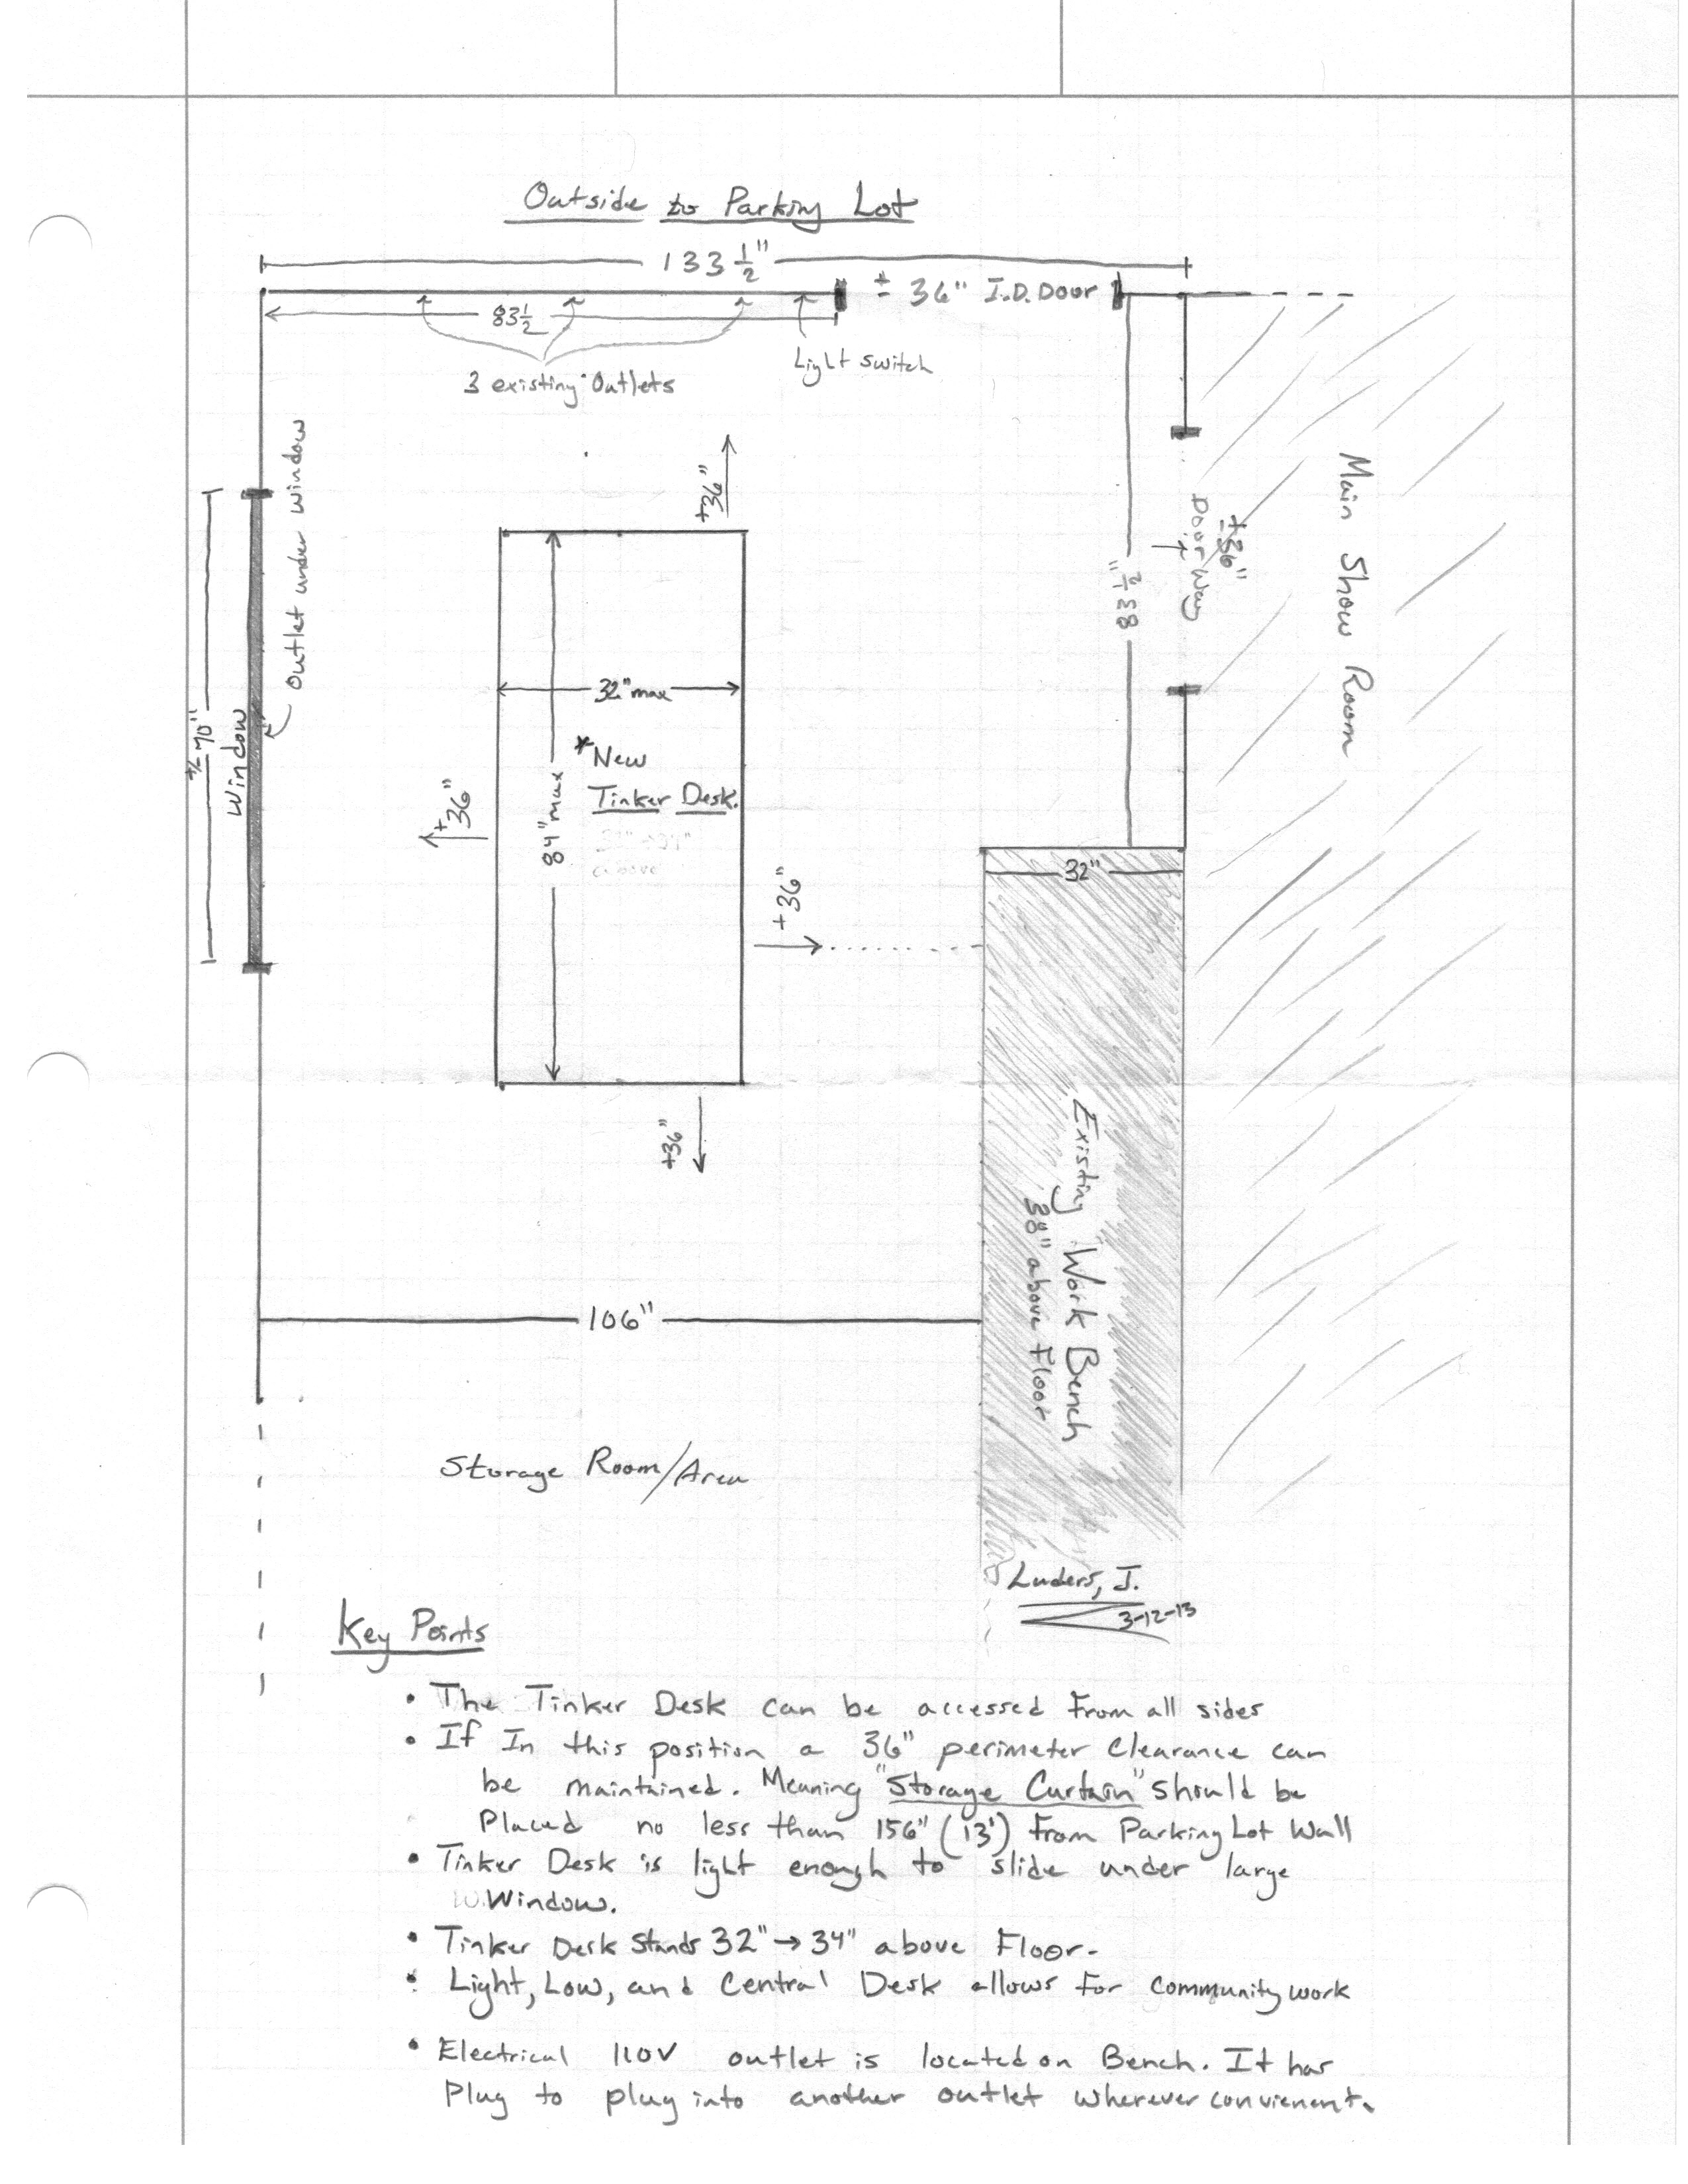 Outside to Parking Lot
133 1/2"
± 36" I.D. Door
83 1/2
3 existing outlets
Light switch
Outlet under window
+/- 70"
Window
+36"
+36"
32" max
84" max
*New
Tinker Desk.
32" → 34"
above
+36"
+36"
83 1/2"
±36"
Door Way
Main Show Room
32"
Existing Work Bench
38" above Floor
106"
Storage Room/Area
Luders, J.
3-12-13
Key Points
• The Tinker Desk can be accessed From all sides
• If In this position a 36" perimeter clearance can
be maintained. Meaning "Storage Curtain" should be
Placed no less than 156" (13') From Parking Lot Wall
• Tinker Desk is light enough to slide under large
Window.
• Tinker Desk Stands 32" → 34" above Floor.
• Light, Low, and Central Desk allows For community work
• Electrical 110V outlet is located on Bench. It has
Plug to plug into another outlet wherever convienent.